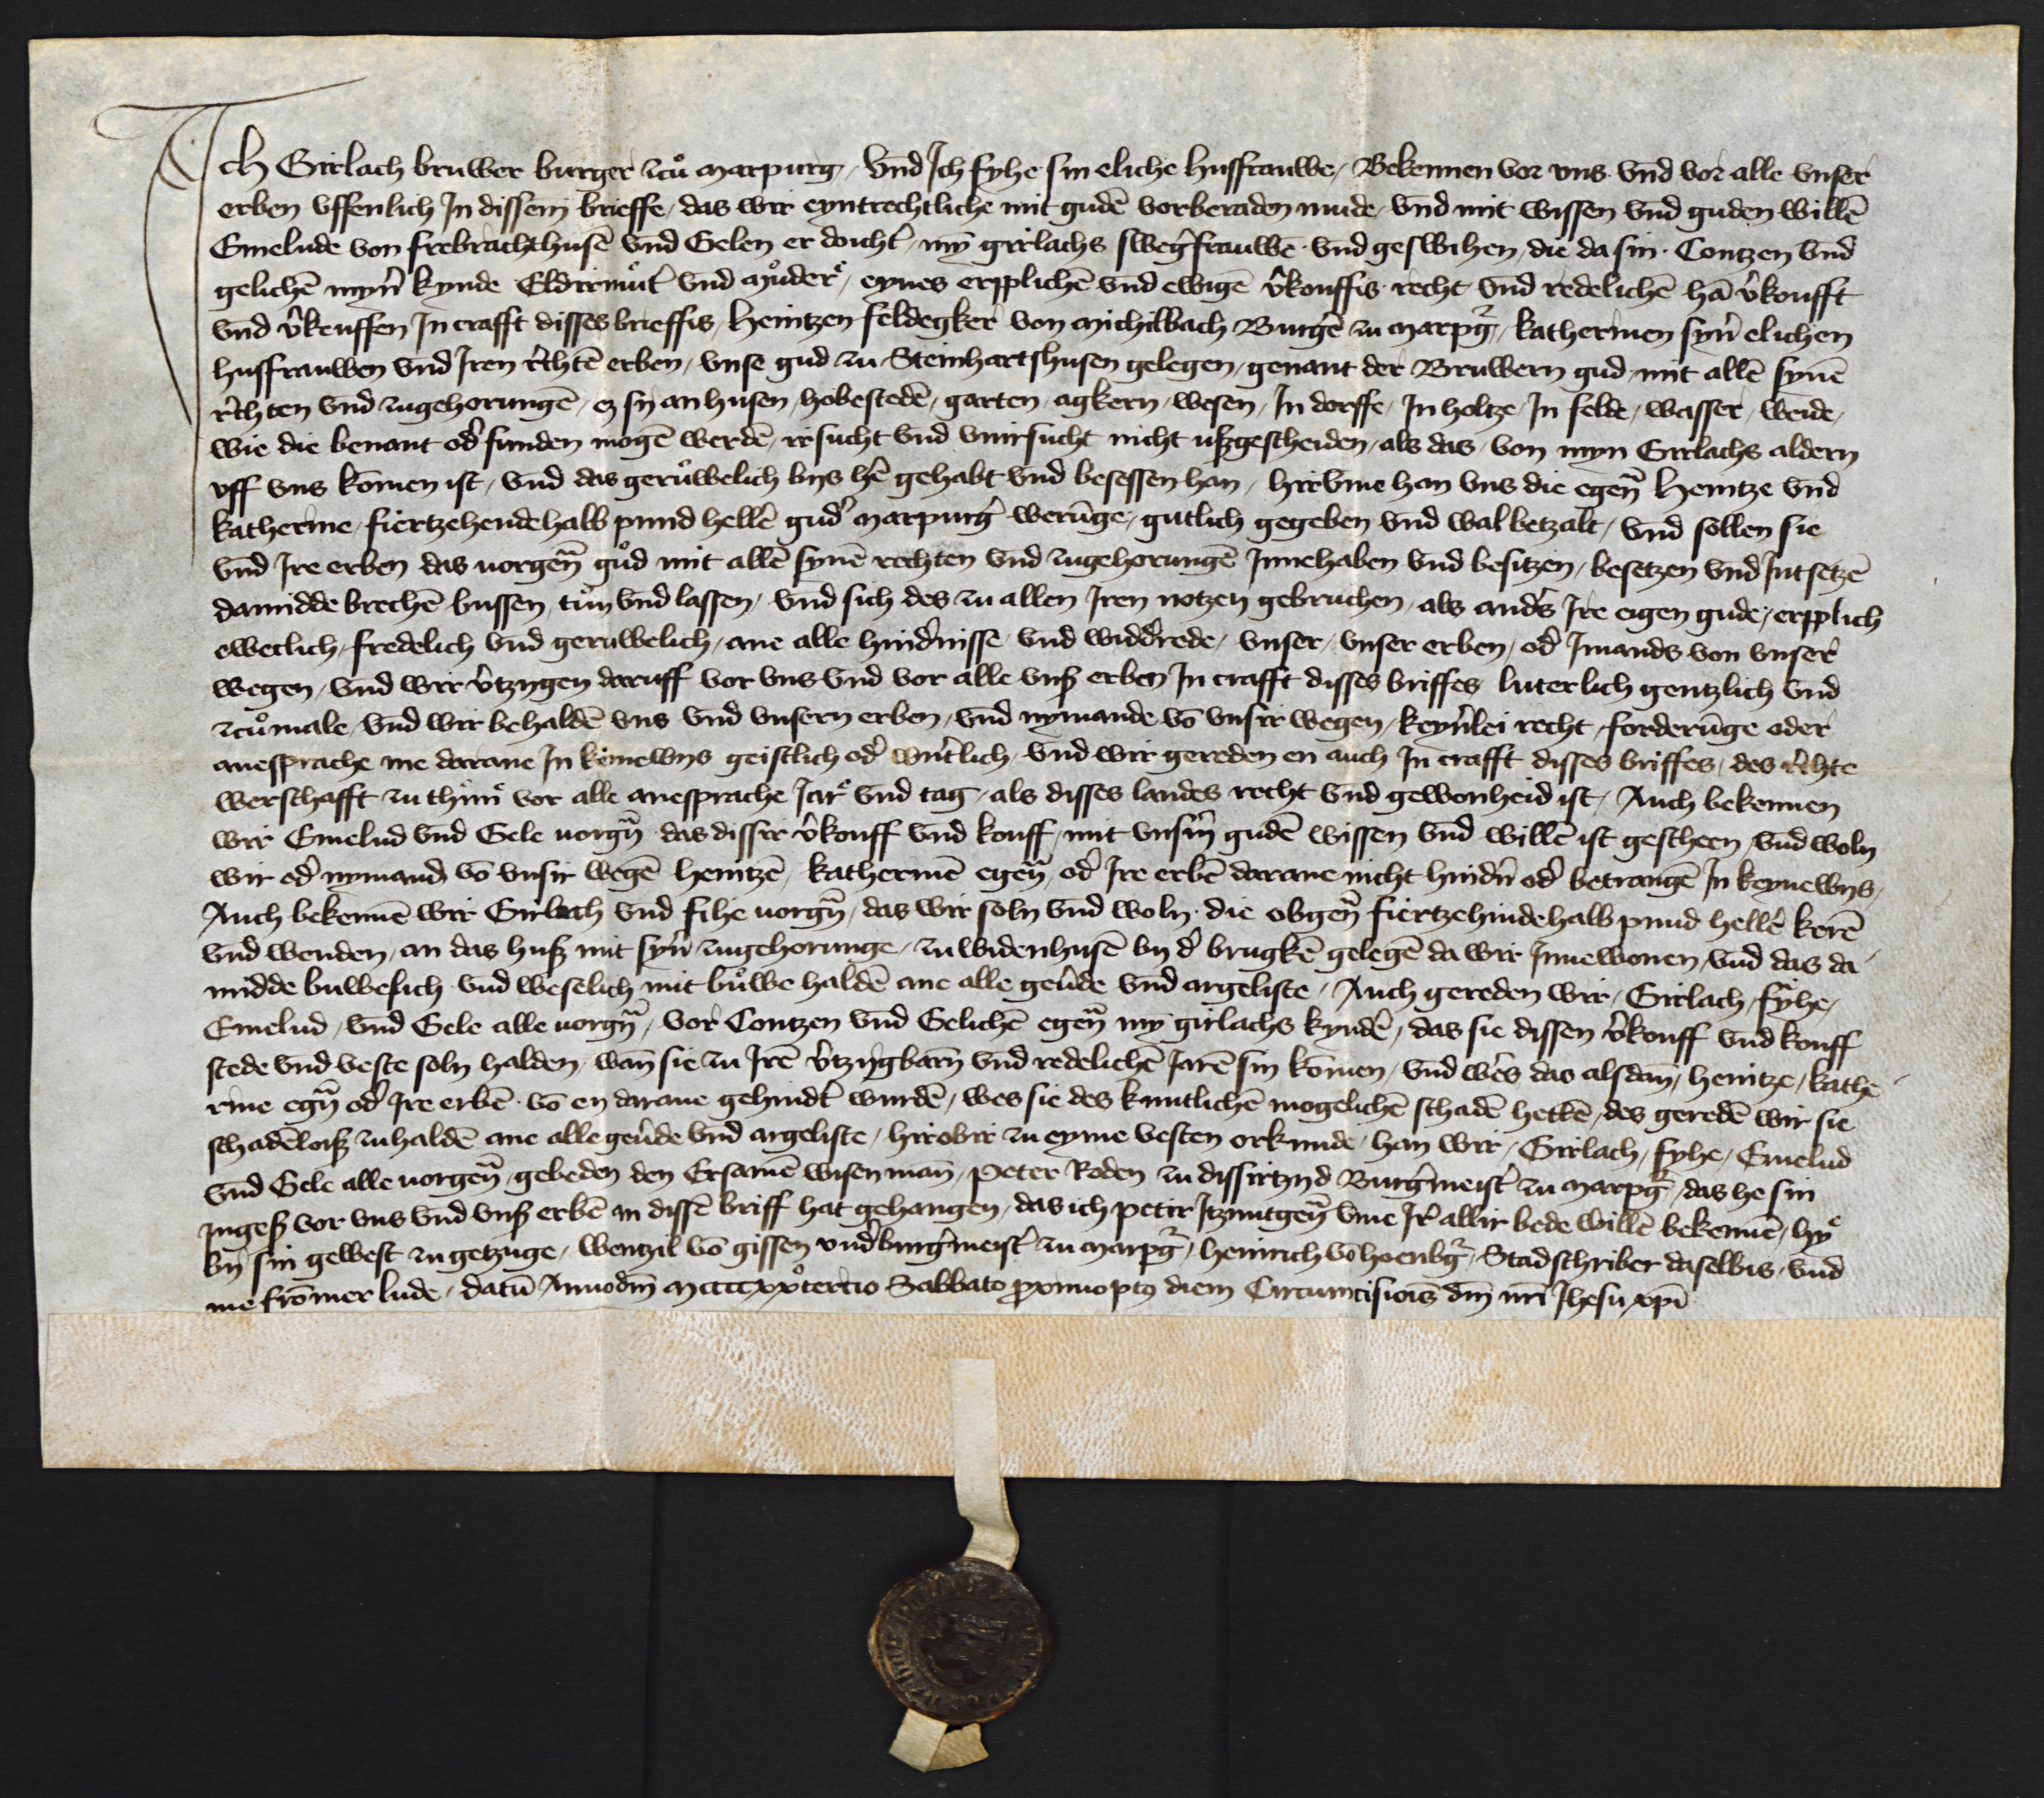 Ich Girlach bruwer burger zcuͦ marpurg / vnd Ich fyhe sin eliche husfrauwe / Bekennen vor vns vnd vor alle vnser
erben vffenlich In dissem brieffe / das wir eyntrechtliche mit gudē vorberaden mude / vnd mit wissen vnd guden willē
Emelude von frebrachthusē vnd Gelen er doicht' / myn girlachs sweg'frauwē vnd geswihen / die da sin Contzen vnd
gelichē myn' kynde Eldirmuͦt' vnd muͦder / eynes erpplichē vnd ewigē v'kouffis recht vnd redelichē hā v'koufft
vnd v'keuffen In crafft disses brieffis / heintzen feldegker von michilbach Burg'e zu marpg' / katherinen syn' elichen
husfrauwen vnd Iren r'chtē erben / vnse gud zu Steinhartshusen gelegen / genant der Bruwern gud / mit allē synē
r'chten vnd zugehorungē / ez sy an husen / hobestedē / garten / agkern / wesen / In dorffe / In holtze / In felde / wasser / weide /
wie die benant od' funden mogē werdē / irsucht vnd vnirsucht nicht uszgescheiden / als das von myn Girlachs aldern
vff vns komen ist / vnd das geruͦwelich bys h'e gehabt vnd besessen han / hirvme han vns die egen̄ heintze vnd
katherine / fiertzehendehalb pund hell'e gud' marpurg' werūge / gutlich gegeben vnd wal betzalt / vnd sollen sie
vnd Ire erben das vorgen̄ guͦd mit allē synē rechten vnd zugehorungē Innehaben vnd besitzen / besetzen vnd Intsetzē
damidde brechē bussen / tuͦn vnd lassen / vnd sich des zu allen Iren notzen gebruchen / als and's Ire eigen gude / erpplich
eweclich / fredelich vnd geruwelich / ane alle hind'nisse vnd widd'rede / vnser / vnser erben / od' Imands von vnser
wegen / vnd wir v'tzygen daruff vor vns vnd vor alle vnsz erben In crafft disses briffes luterlich gentzlich vnd
zcuͦmale / vnd wir behaldē vns vnd vnsern erben / vnd nymande vō vnsir wegen / keyn'lei recht / forderūge oder
anesprache me darane In keinewys geistlich od' wn'tlich / vnd wir gereden en auch In crafft disses briffes / des r'chte
werschafft zu thūn vor alle anesprache Iar vnd tag / als disses landes recht vnd gewonheid ist / Auch bekennen
wir Emelud vnd Gele vorgn̄ das dissir v'kouff vnd kouff / mit vns'm gudē wissen vnd willē ist gescheen / vnd woln
wir od' nymand vō vnsir wegē heintzē / katherinē egen̄ / od' Ire erbē darane nicht hind'n od' betrangē In keynewys /
Auch bekennē wir Girlach vnd fihe vorgn̄ / das wir soln vnd woln die obgen̄ fiertzehindehalb pund hell'e kerē
vnd wenden / an das husz mit syn' zugehorunge / zu widenhusē by d' brugkē gelegē da wir Innewonen / vnd das da
midde buwesich vnd weselich mit buͦwe haldē ane alle geu'de vnd argeliste / Auch gereden wir / Girlach / fyhe /
Emelud / vnd Gele alle vorgn̄ / vor Contzen vnd Gelichē egen̄ my girlachs kynd'e / das sie dissen v'kouff vnd kouff
stede vnd veste soln halden / wan̄ sie zu Irē v'tzygbarn̄ vnd redelichē Iarē sin komen / vnd wer's das alsdan̄ / heintze / kathe
rine egn̄ od' Ire erbē vō en darane gehindt' wurdē / wes sie des kuntlichē mogelichē schadē hettē / des geredē wir sie
schadēloisz zuhaldē ane alle geu'de vnd argeliste / hirobir zu eyme vesten orkunde / han wir / Girlach / fyhe / Emelud
vnd Gele alle vorgen̄ / gebeden den Ersamē wisen man̄ / Peter Roden zu dissirtzyd Burg'meist' zu marpg' / das he sin
Ingesz vor vns vnd vnsz erbē an dissē briff hat gehangen / das ich peter Itzuntgen̄ vme Ir' allir bede willē bekennē / hy
by sin gewest zu getzuge / wentzil vō gissen vnd'burg'meist' zu marpg' / heinrich vō hoenbg' / Stadschriber daselbis / vnd
me frōmer lude / datū Anno dm̄ mccccxxͦ tercio Sabbato proximo post diem Circumcisiōis dm̄ nr̄i Ihesu xp̄i